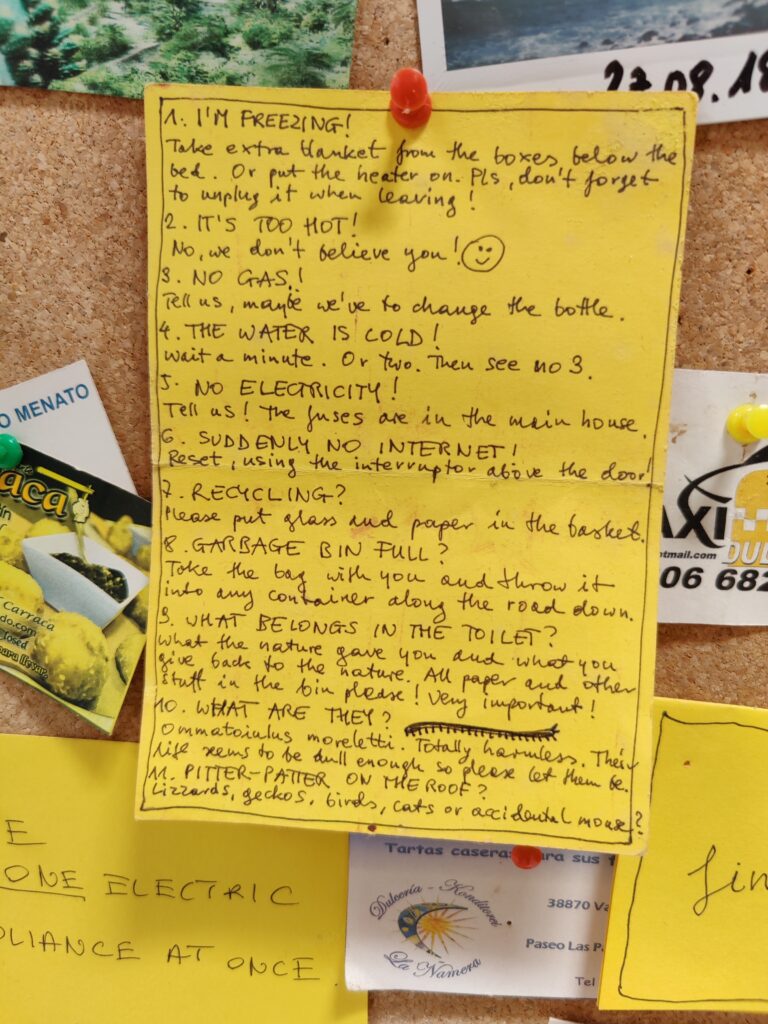 27.09.18
1. I'M FREEZING!
Take extra blanket from the boxes below the
bed. Or put the heater on. Pls, don't forget
to unplug it when leaving!
2. IT'S TOO HOT!
No, we don't believe you!
3. NO GAS!
Tell us, maybe we've to change the bottle.
4. THE WATER IS COLD!
Wait a minute. Or two. Then see no 3.
5. NO ELECTRICITY!
Tell us! The fuses are in the main house.
6. SUDDENLY NO INTERNET!
Reset, using the interruptor above the door!
7. RECYCLING?
Please put glass and paper in the basket.
8. GARBAGE BIN FULL?
Take the bag with you and throw it
into any container along the road down.
9. WHAT BELONGS IN THE TOILET?
What the nature gave you and what you
give back to the nature. All paper and other
stuff in the bin please! Very important!
10. WHAT ARE THEY?
Ommatoiulus moreletti. Totally harmless. Their
life seems to be dull enough so please let them be.
11. PITTER-PATTER ON THE ROOF?
Lizzards, geckos, birds, cats or accidental mouse?
O MENATO
raca
Carraca
do.com
losed
para llevar
AXI
DUL
otmail.com
06 682
E
ONE ELECTRIC
PLIANCE AT ONCE.
Tartas caseras para sus
Dulcería - Konditorei
La Ñamera
38870 Va
Paseo Las P
Tel